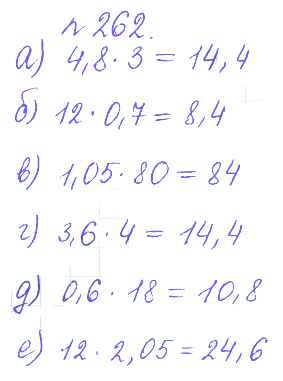 № 262.
а) 4,8 · 3 = 14,4
б) 12 · 0,7 = 8,4
в) 1,05 · 80 = 84
г) 3,6 · 4 = 14,4
д) 0,6 · 18 = 10,8
е) 12 · 2,05 = 24,6